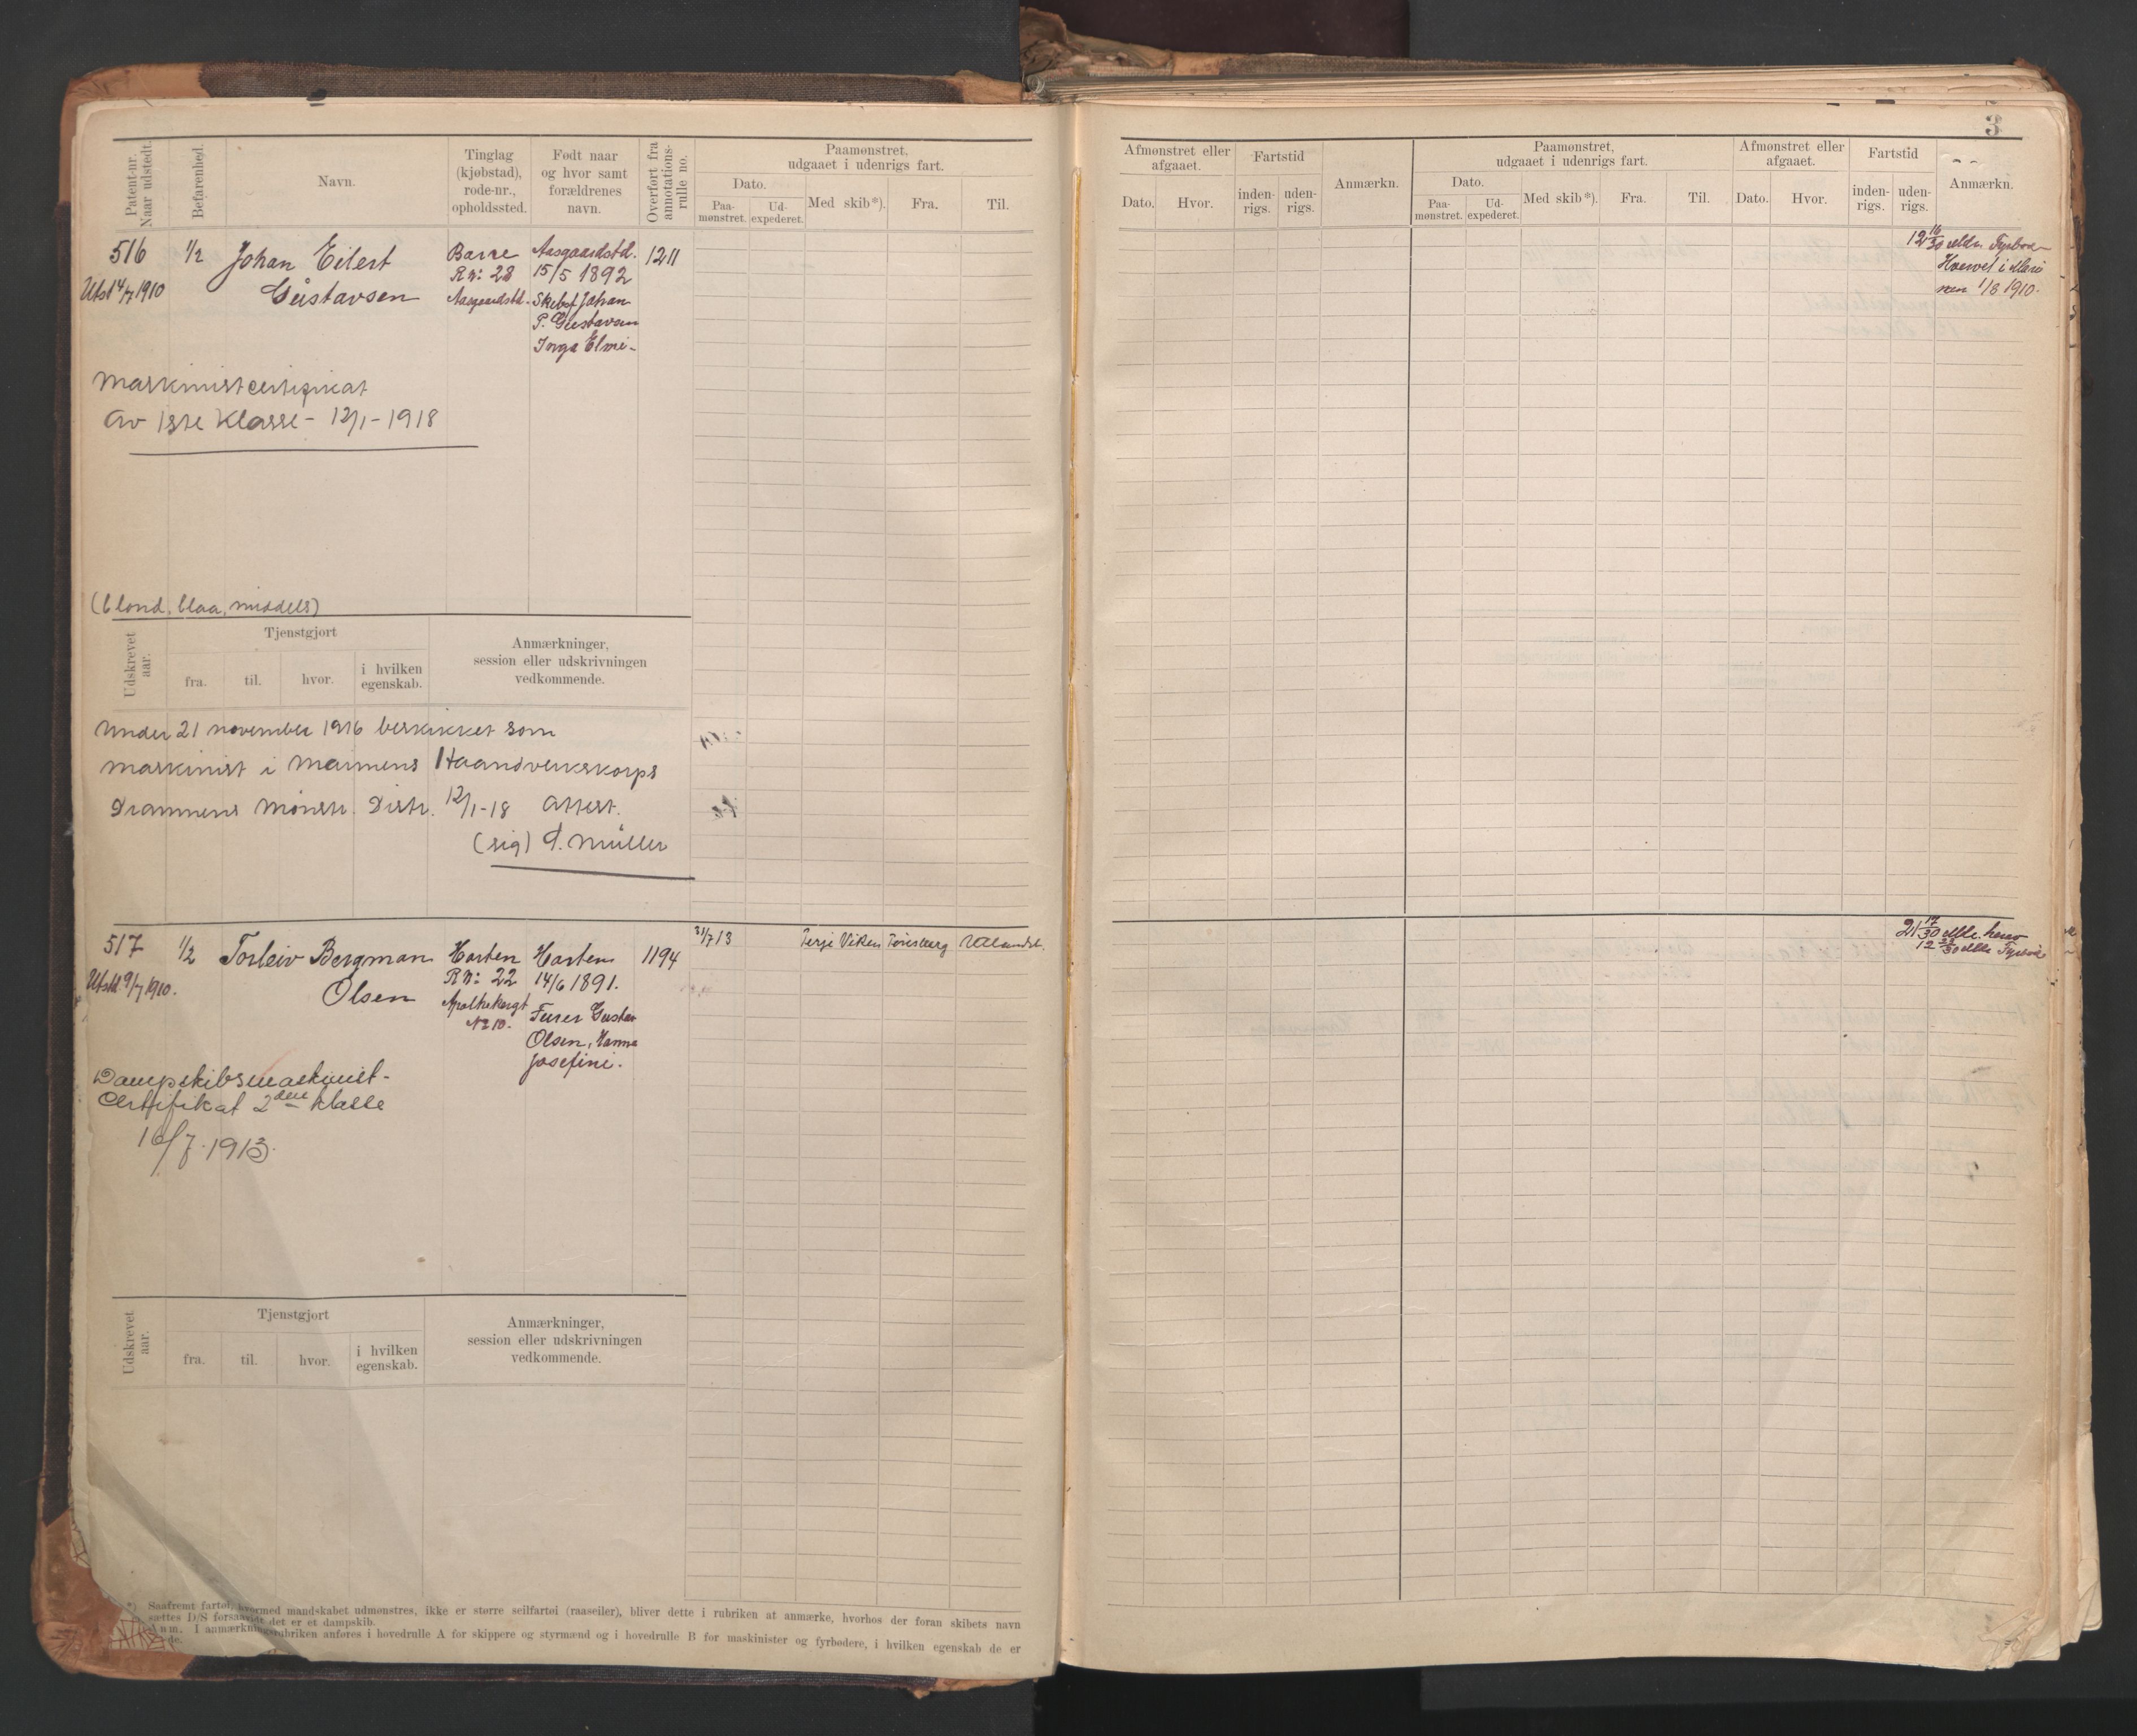 3
Patent-nr.
Naar udstedt.
Befarenhed.
Navn.
Tinglag
(kjøbstad),
rode-nr.,
opholdssted.
Født naar
og hvor samt
forældrenes
navn.
Overført fra
annotations-
rulle no.
Paamønstret,
udgaaet i udenrigs fart.
Dato.
Paa-
mønstret.
Ud-
expederet.
Med skib*).
Fra.
Til.
Afmønstret eller
afgaaet.
Dato.
Hvor.
Fartstid
inden-
rigs.
uden-
rigs.
Anmærkn.
Paamønstret,
udgaaet i udenrigs fart.
Dato.
Paa-
mønstret.
Ud-
expederet.
Med skib*).
Fra.
Til.
Afmønstret eller
afgaaet.
Dato.
Hvor.
Fartstid
inden-
rigs.
uden-
rigs.
Anmærkn.
516
Utst 14/7 1910
1/2
Johan Eilert
Gustavsen
Borre
R N: 28
Aasgaardstd.
Aasgaardstd.
15/5 1892
Johan
P. Gustavsen
1211
12 16/30
Hvervet i Mari
nen 1/8 1910.
Maskinistcertifikat
Av 1ste Klasse - 12/1 - 1918
(blond, blaa, middels)
Udskrevet
aar.
Tjenstgjort
fra.
til.
hvor.
i hvilken
egenskab.
Anmærkninger,
session eller udskrivningen
vedkommende.
Under 21 november 1916 beskikket som
maskinist i Marinens Haandverkskorps
Drammens Mønstr. Distr. 12/1-18 Attest.
(sig) Müller
517
Utstd 9/7 1910.
1/2
Torleiv Bergman
Olsen
Horten
R N: 22
Apothekergt
No 10.
Horten
14/6 1891.
Gustav
Olsen, Hanna
Josefine.
1194
31/7 13
Terje Viken
Tønsberg
21 17/30
12 23/30
Dampskibsmaskinist-
Certifikat 2den Klasse
16/7. 1913.
Udskrevet
aar.
Tjenstgjort
fra.
til.
hvor.
i hvilken
egenskab.
Anmærkninger,
session eller udskrivningen
vedkommende.
*) Saafremt fartøi, hvormed mandskabet udmønstres, ikke er større seilfartøi (raaseiler), bliver dette i rubriken at anmærke, hvorhos der foran skibets navn
sættes D/S forsaavidt det er et dampskib.
Anm. I anmærkningsrubriken anføres i hovedrulle A for skippere og styrmænd og i hovedrulle B for maskinister og fyrbødere, i hvilken egenskab de er